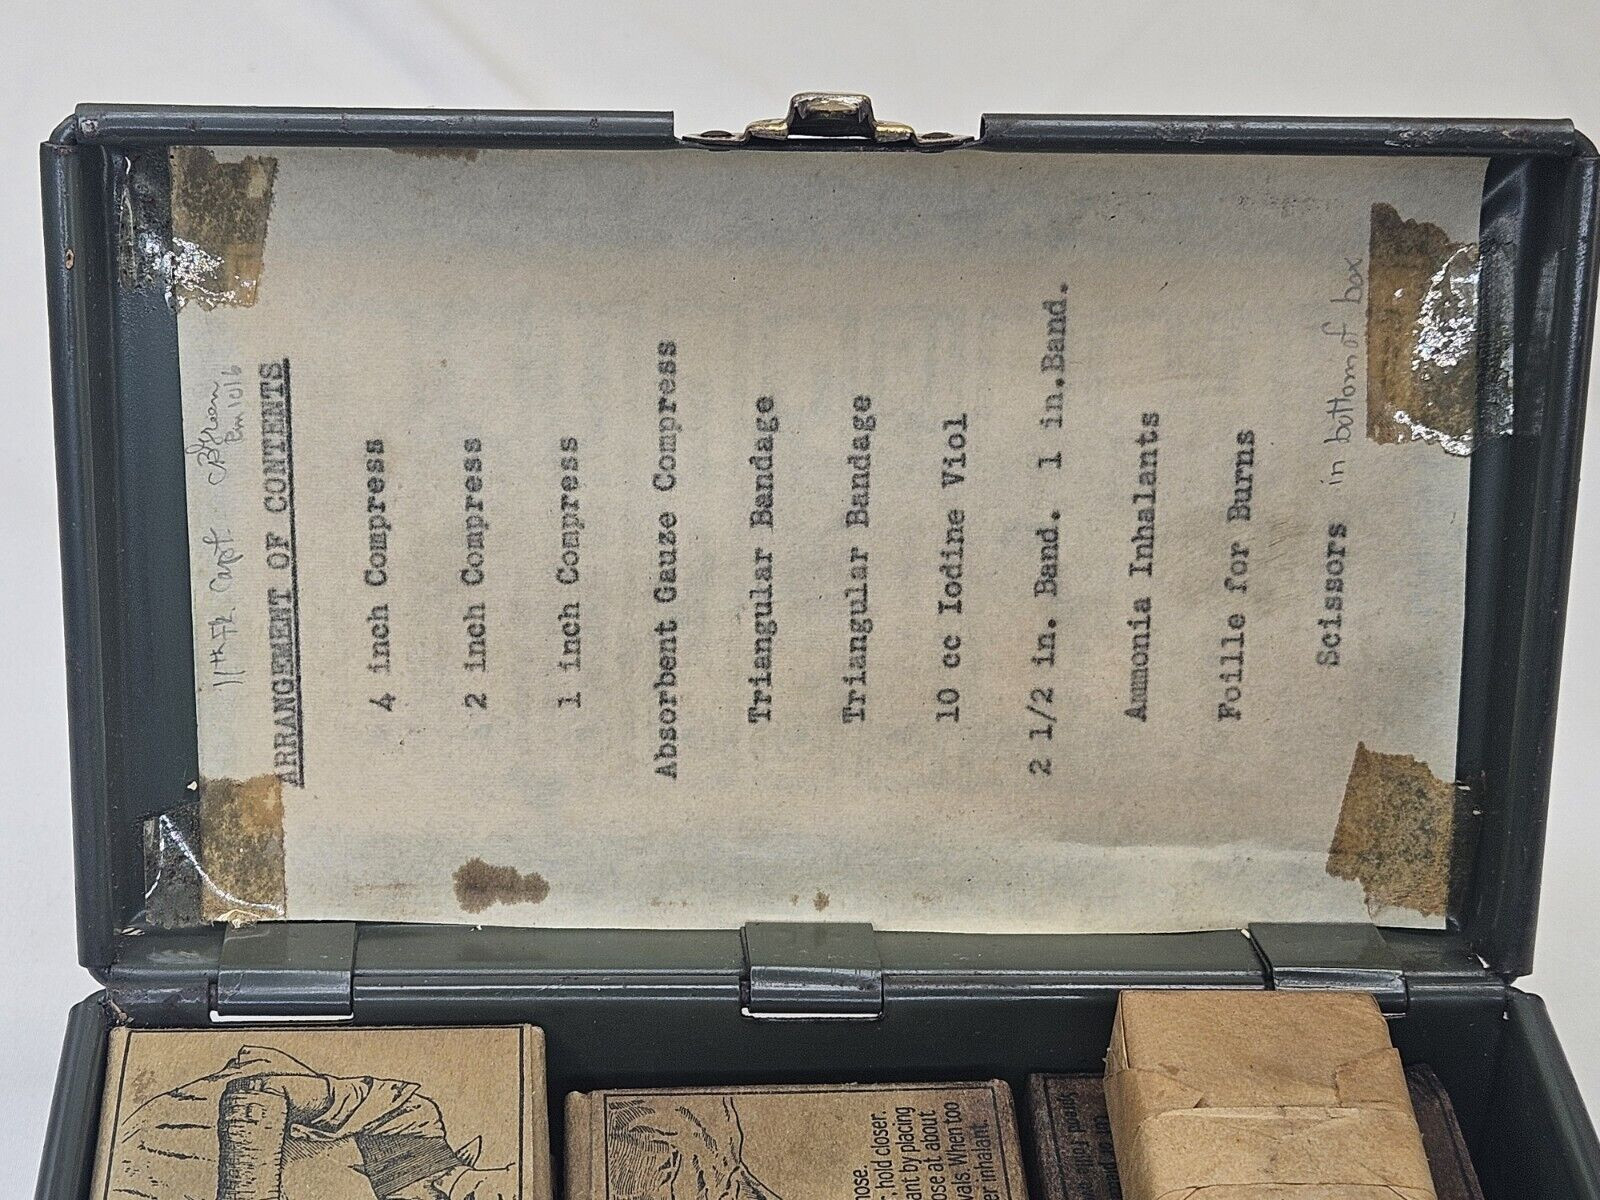 11th Fl. Capt. B Green
Rm 1016
ARRANGEMENT OF CONTENTS
4 inch Compress
2 inch Compress
1 inch Compress
Absorbent Gauze Compress
Triangular Bandage
Triangular Bandage
10 cc Iodine Viol
2 1/2 in. Band. 1 in.Band.
Ammonia Inhalants
Foille for Burns
Scissors in bottom of box
nose.
, hold closer.
ant by placing
ose at about
vals. When too
er inhalant.